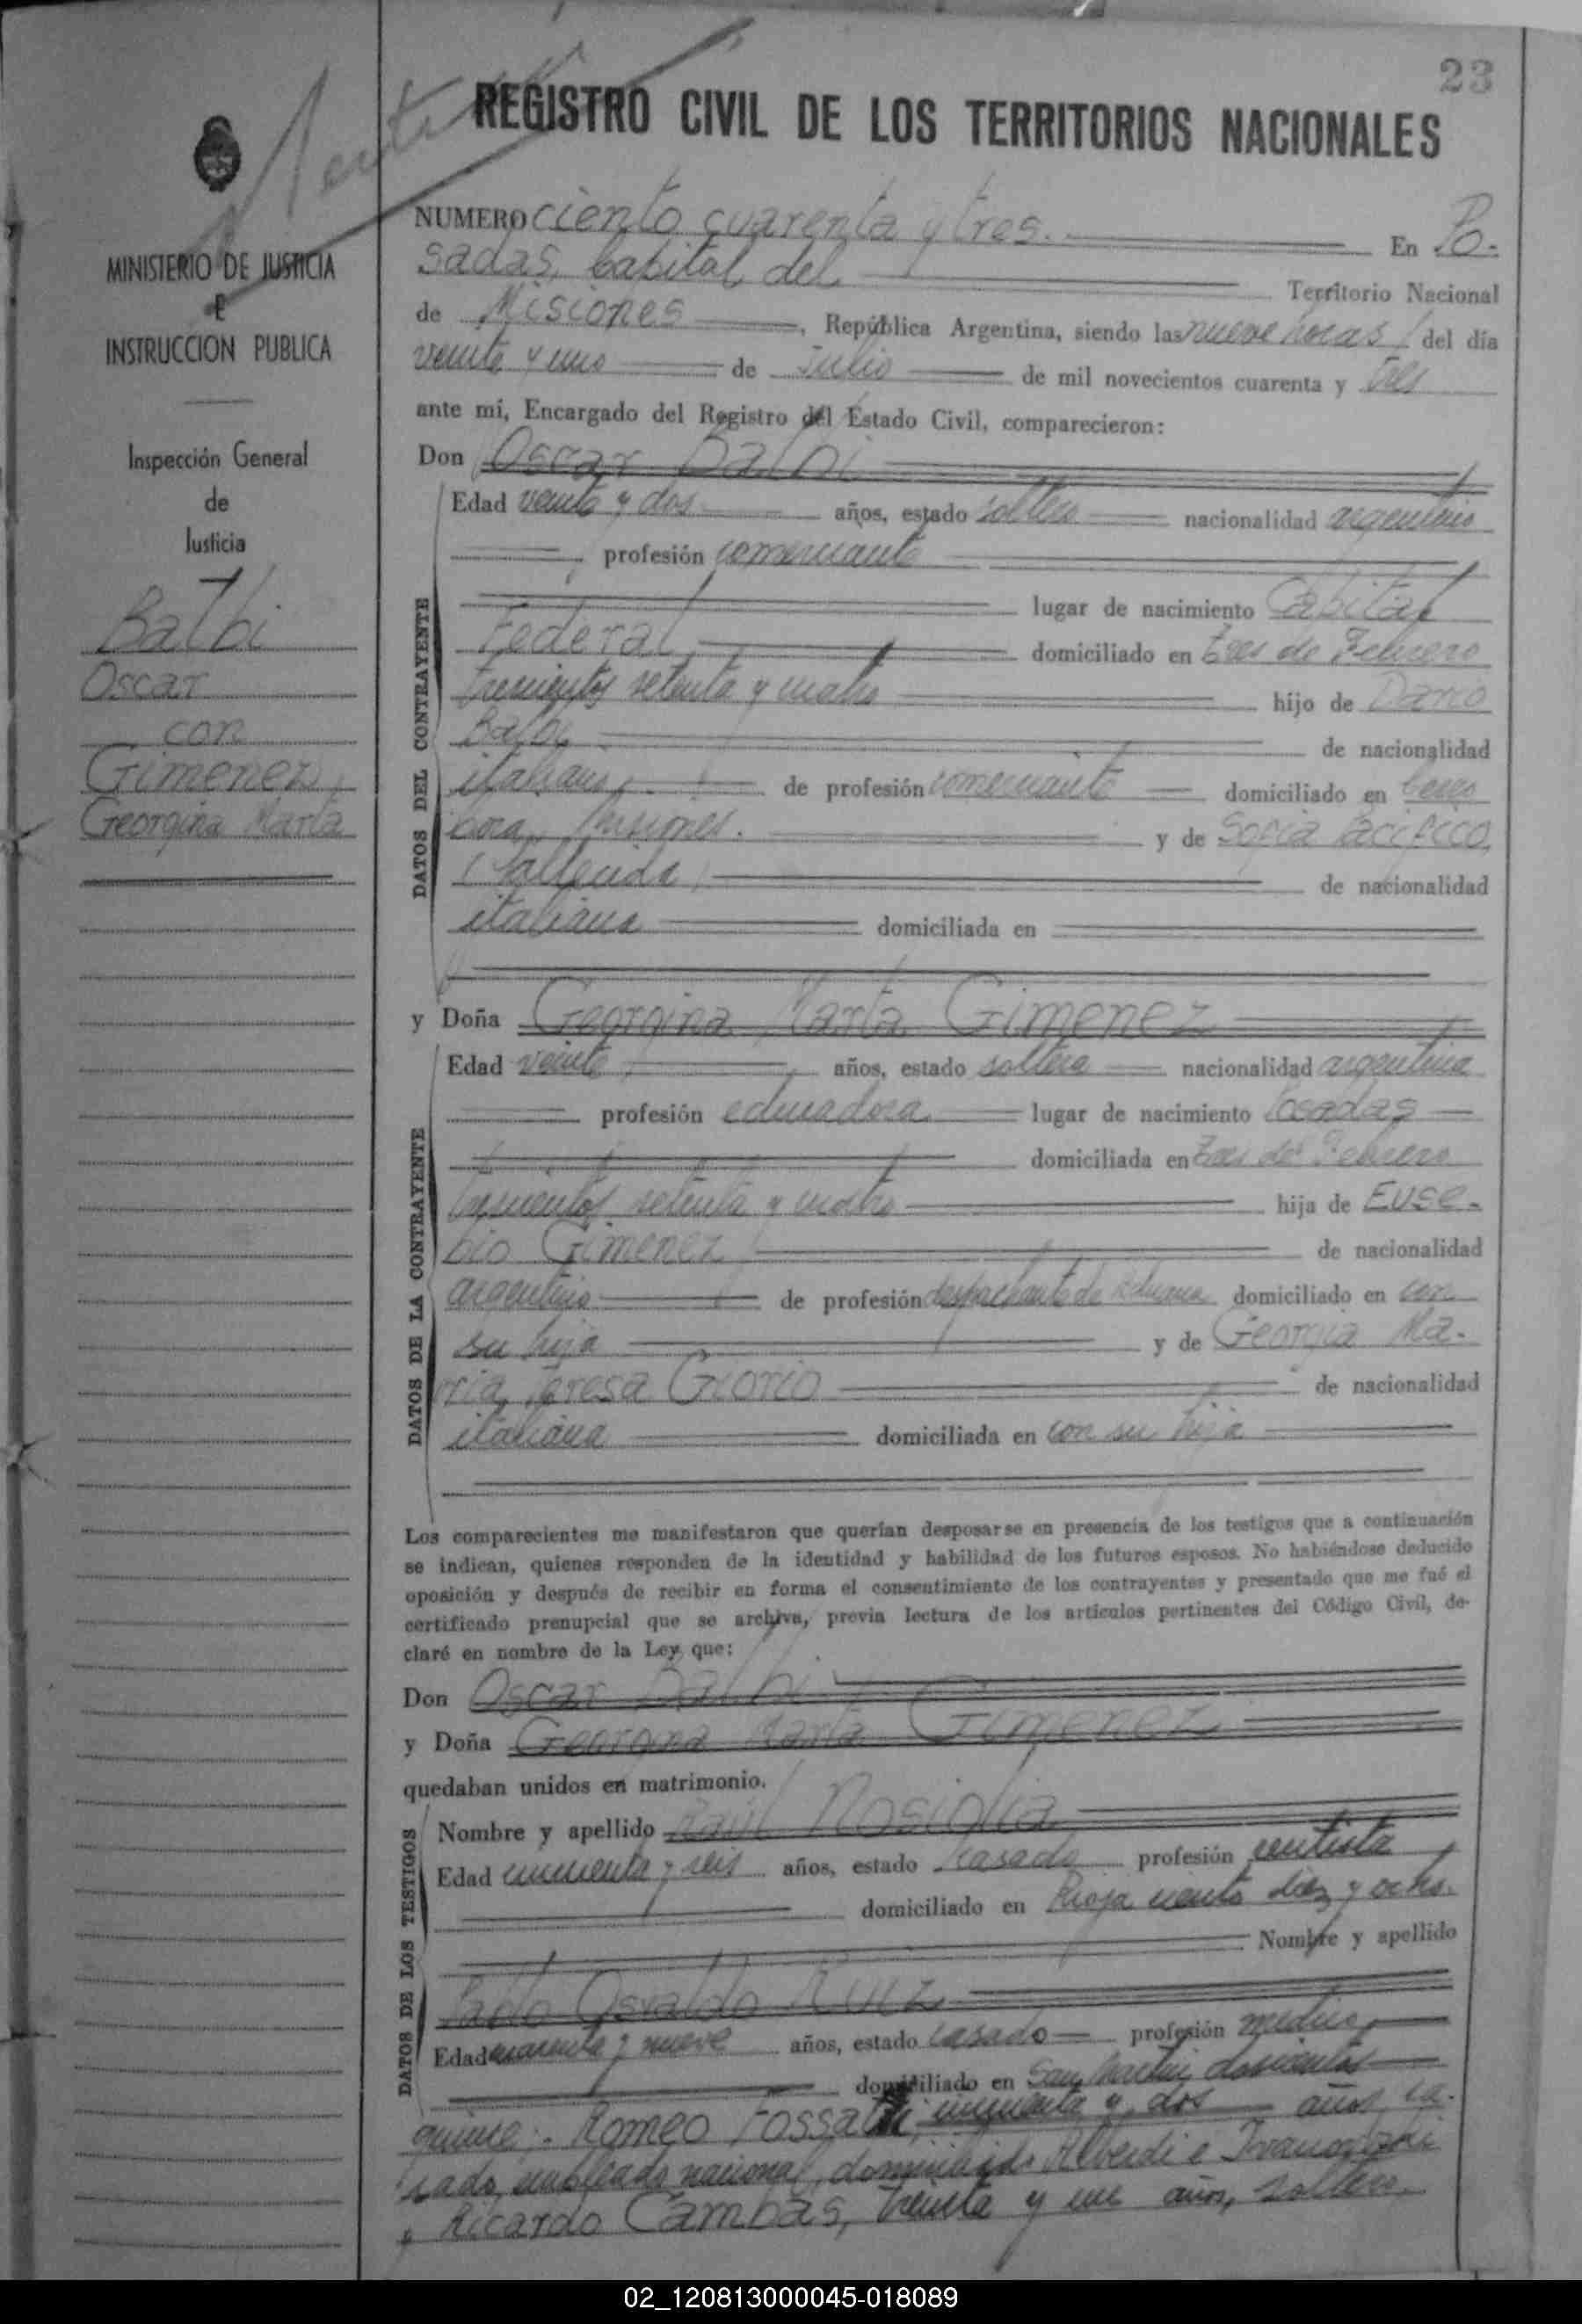 23
REGISTRO CIVIL DE LOS TERRITORIOS NACIONALES
MINISTERIO DE JUSTICIA
E
INSTRUCCION PUBLICA
Inspección General
de
Justicia
Balbi
Oscar
con
Gimenez,
Georgina Marta
NUMERO ciento cuarenta y tres. En Po-
sadas, Capital del Territorio Nacional
de Misiones, República Argentina, siendo las nueve horas del día
veinte y uno de Julio de mil novecientos cuarenta y tres
ante mí, Encargado del Registro del Estado Civil, comparecieron:
Don Oscar Balbi
DATOS DEL CONTRAYENTE
Edad veinte y dos años, estado soltero nacionalidad argentino
profesión comerciante
lugar de nacimiento Capital
Federal domiciliado en tres de Febrero
trescientos setenta y cuatro hijo de Dario
Balbi de nacionalidad
italiano, de profesión comerciante domiciliado en
Misiones. y de Sofia Pacifico,
(fallecida) de nacionalidad
italiana domiciliada en
y Doña Georgina Marta Gimenez
DATOS DE LA CONTRAYENTE
Edad veinte años, estado soltera nacionalidad argentina
profesión educadora lugar de nacimiento Posadas
domiciliada en tres de Febrero
trescientos setenta y cuatro hija de Euse-
bio Gimenez de nacionalidad
argentino de profesión despachante de Aduana domiciliado en con
su hija y de Georgia Ma-
ria Teresa Giorio de nacionalidad
italiana domiciliada en con su hija
Los comparecientes me manifestaron que querían desposarse en presencia de los testigos que a continuación
se indican, quienes responden de la identidad y habilidad de los futuros esposos. No habiéndose deducido
oposición y después de recibir en forma el consentimiento de los contrayentes y presentado que me fué el
certificado prenupcial que se archiva, previa lectura de los artículos pertinentes del Código Civil, de-
claré en nombre de la Ley, que:
Don Oscar Balbi
y Doña Georgina Marta Gimenez
quedaban unidos en matrimonio.
DATOS DE LOS TESTIGOS
Nombre y apellido Raúl Nosiglia
Edad cincuenta y seis años, estado casado profesión rentista
domiciliado en Rioja ciento diez y ocho.
Nombre y apellido
Pablo Osvaldo Ruiz
Edad cuarenta y nueve años, estado casado profesión medico,
domiciliado en San Martin doscientos
quince.- Romeo Fossatti, cincuenta y dos años, ca-
sado, empleado nacional, domiciliado Alberdi e
y Ricardo Cambas, treinta y un años, soltero,
02_120813000045-018089